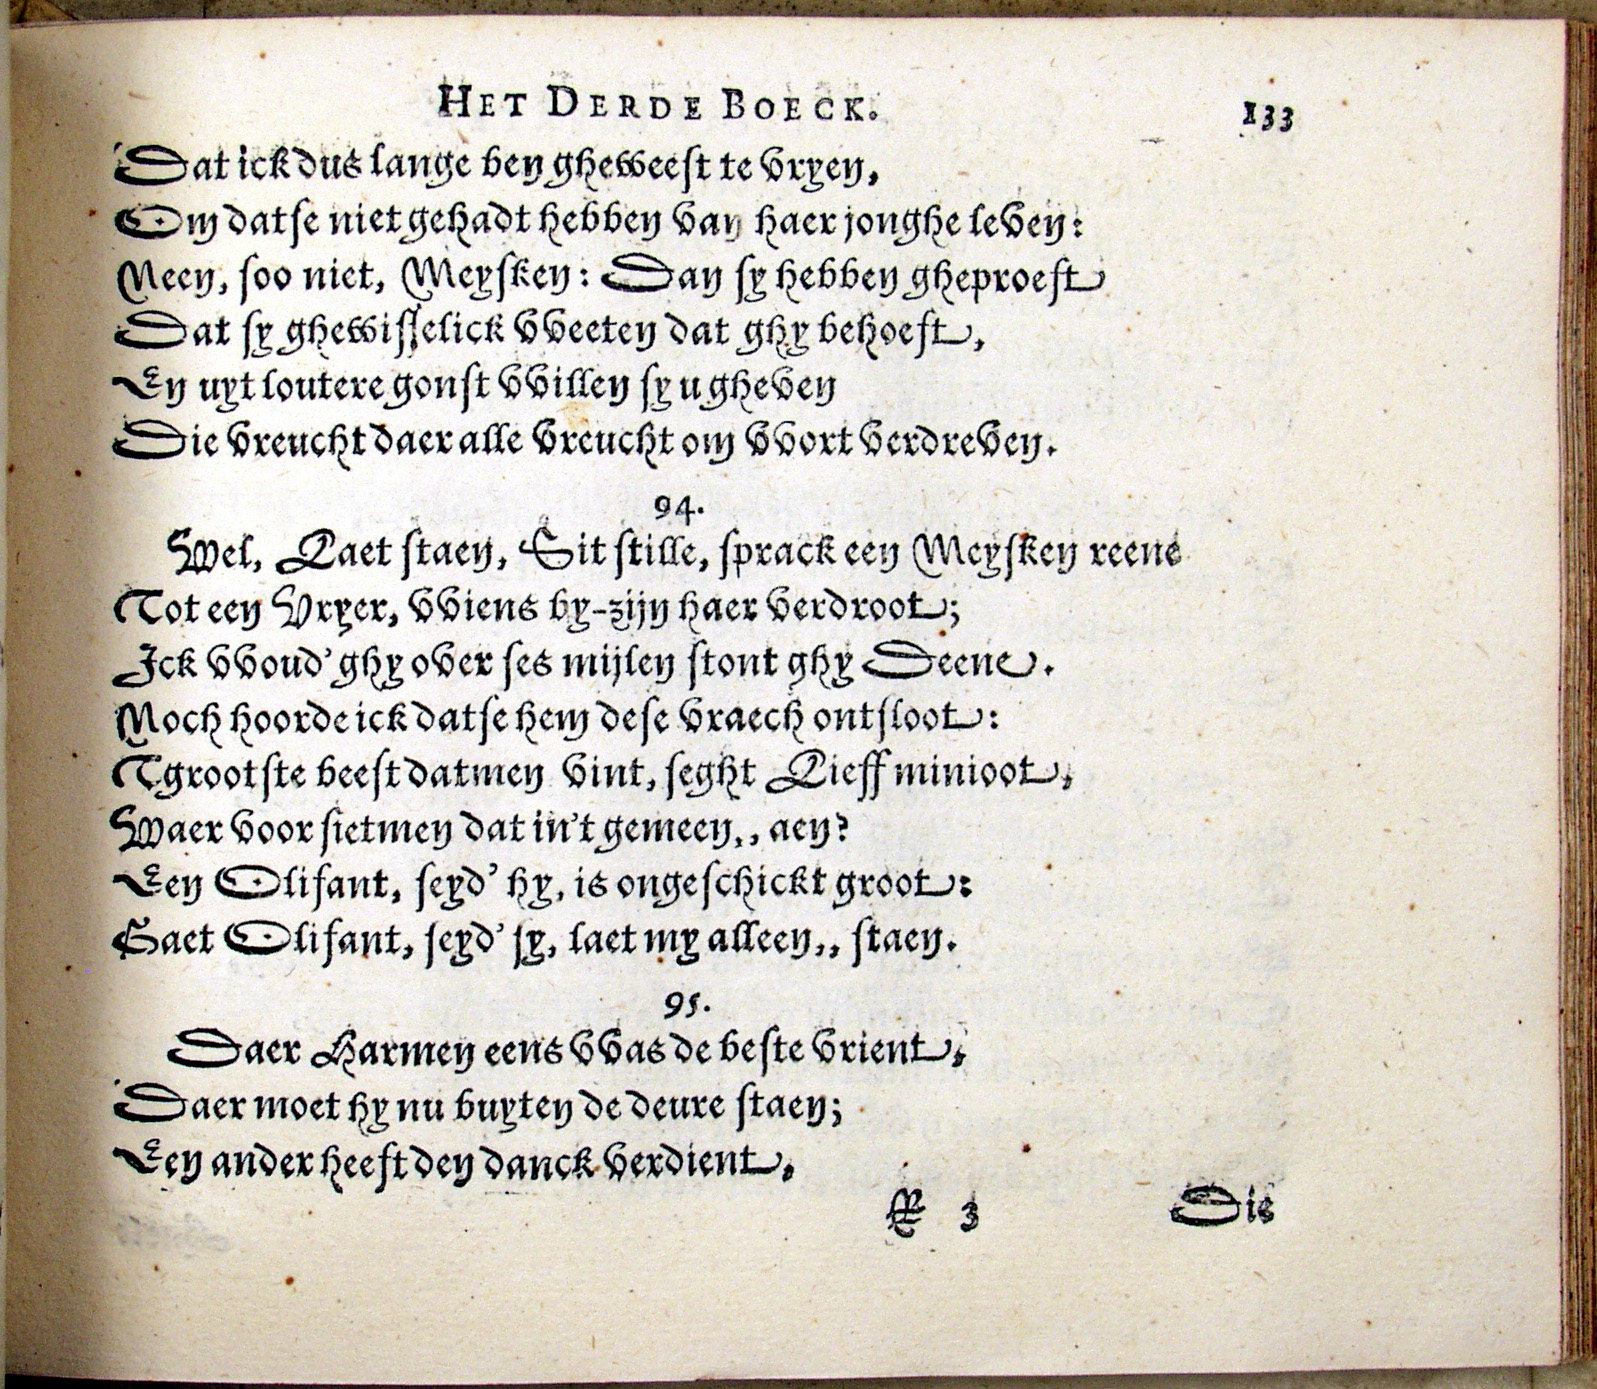 HET DERDE BOECK. 133
Dat ick dus lange ben gheweest te vryen,
Om datse niet gehadt hebben van haer jonghe leven:
Neen, soo niet, Meysken: Dan sy hebben gheproeft
Dat sy ghewisselick vveeten dat ghy behoeft,
En uyt loutere gonst vvillen sy u gheven
Die vreucht daer alle vreucht om vvort verdreven.
94.
Wel, Laet staen, Sit stille, sprack een Meysken reene
Tot een Vryer, vviens by-zijn haer verdroot;
Ick vvoud' ghy over ses mijlen stont ghy Deene.
Noch hoorde ick datse hem dese vraech ontsloot:
Tgrootste beest datmen vint, seght Lieff minioot,
Waer voor sietmen dat in't gemeen,, aen?
Een Olifant, seyd' hy, is ongeschickt groot:
Gaet Olifant, seyd' sy, laet my alleen,, staen.
95.
Daer Harmen eens vvas de beste vrient,
Daer moet hy nu buyten de deure staen;
Een ander heeft den danck verdient,
R 3 Die